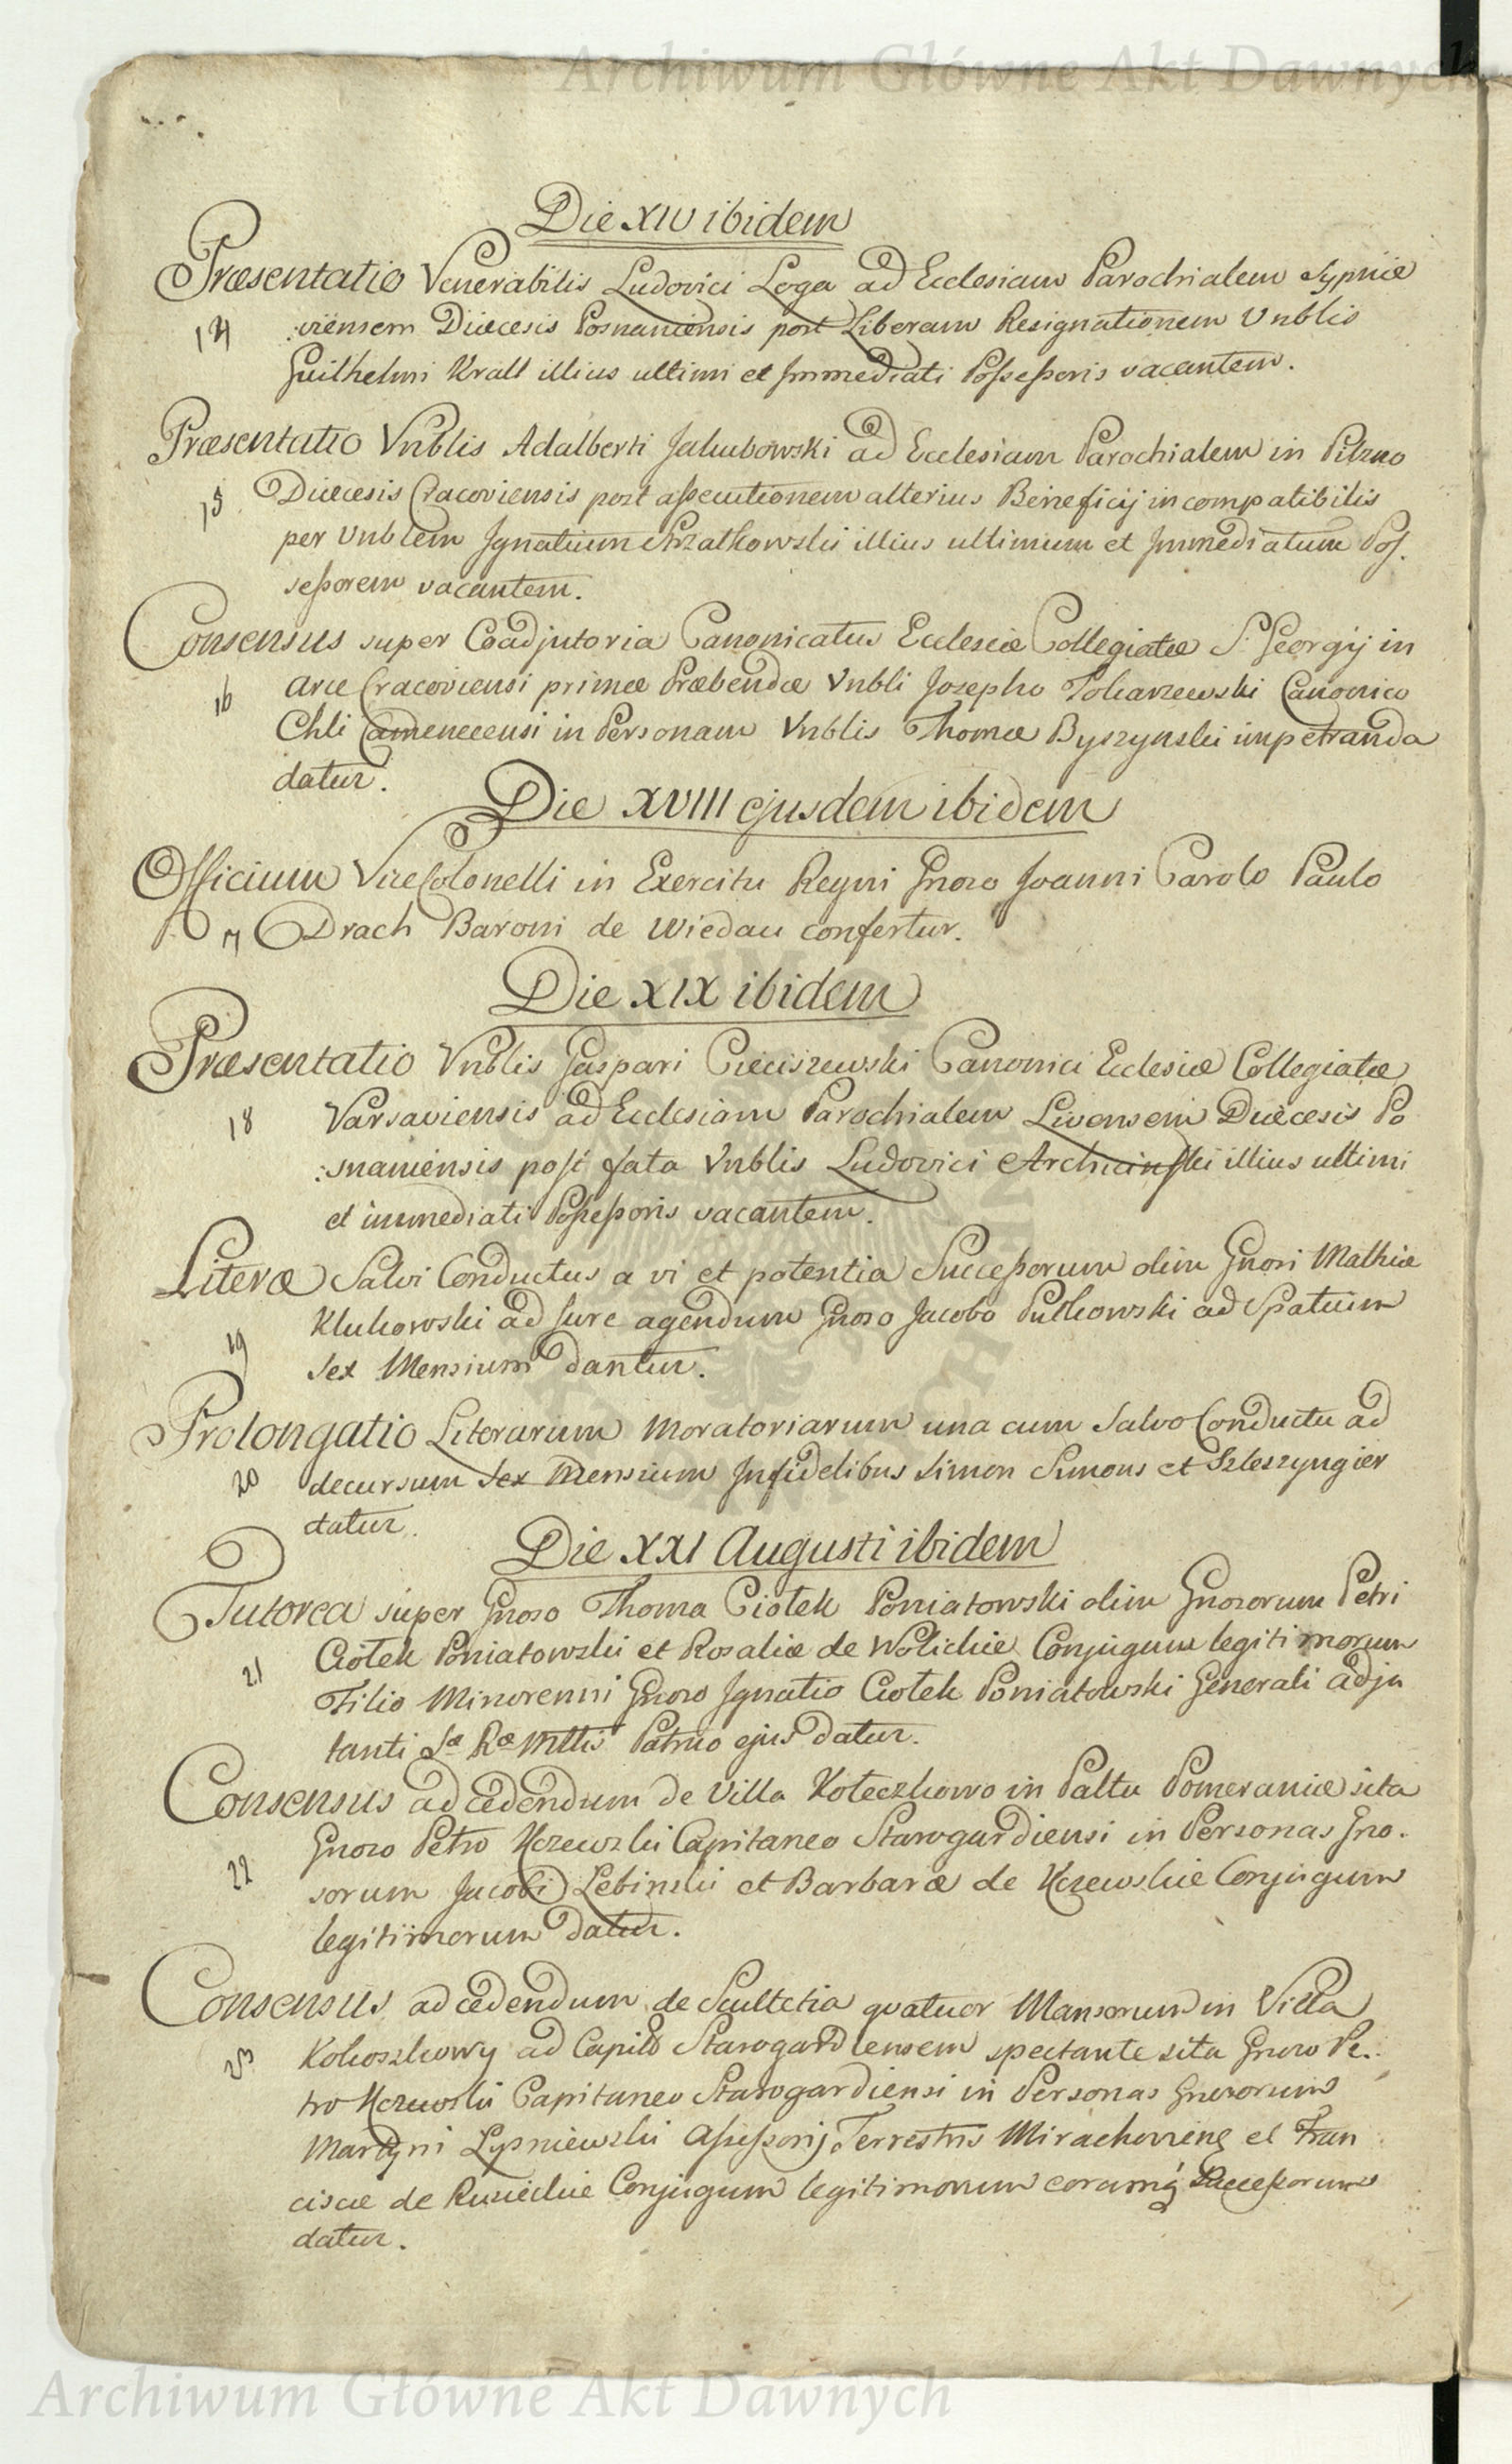 Archiwum Główne Akt Dawnych
Die XIV ibidem
Præsentatio Venerabilis Ludovici Loga ad Ecclesiam Parochialem Sypnie
14 :viensem Diœcesis Posnaniensis post Liberam Resignationem Vnblis
Guilhelmi Krall illius ultimi et Immediati Possessoris vacantem.
Præsentatio Vnblis Adalberti Jakubowski ad Ecclesiam Parochialem in Pilzno
15 Diœcesis Cracoviensis post assecutionem alterius Beneficij incompatibilis
per Vnblem Ignatium illius ultimum et Immediatum Pos.
sessorem vacantem.
Consensus super Coadjutoria Canonicatus Ecclesiæ Collegiatæ S. Georgij in
16 Arce Cracoviensi primæ Præbendæ Vnbli Josepho Canonico
Chli Camenecensi in Personam Vnblis Thomæ Byszynski impetranda
datur.
Die XVIII ejusdem ibidem
Officium ViceColonelli in Exercitu Regni Gnoso Joanni Carolo Paulo
17 Drach Baroni de Wiedau confertur.
Die XIX ibidem
Præsentatio Vnblis Gaspari Cieciszewski Canonici Ecclesiæ Collegiatæ
18 Varsaviensis ad Ecclesiam Parochialem Livensem Diœcesis Po
:snaniensis post fata Vnblis Ludovici Archicinski illius ultimi
et immediati Possessoris vacantem.
Literæ Salvi Conductus a vi et potentia Successorum olim Gnosi Mathiæ
19 Klukowski ad Jure agendum Gnoso Jacobo Pulkowski ad Spatium
Sex Mensium dantur.
Prolongatio Literarum Moratoriarum una cum Salvo Conductu ad
20 decursum Sex Mensium Infidelibus Simon Simons et Szleszyngier
datur.
Die XXI Augusti ibidem
Tutorea super Gnoso Thoma Ciołek Poniatowski olim Gnosorum Petri
21 Ciołek Poniatowski et Rosaliæ de Wolickie Conjugum legitimorum
Filio Minorenni Gnoso Ignatio Ciołek Poniatowski Generali Adju
tanti Sæ Ræ Mttis Patruo ejus datur.
Consensus ad cedendum de Villa Koteczkowo in Pałtu Pomeraniæ sita
22 Gnoso Petro Kczewski Capitaneo Starogardiensi in Personas Gno.
sorum Jacobi Lebinski et Barbaræ de Kczewskie Conjugum
legitimorum datur.
Consensus ad cedendum de Scultetia quatuor Mansorum in Villa
23 Kokoszkowy ad Captũ Starogardiensem spectante sita Gnoso Pe..
tro Kczewski Capitaneo Starogardiensi in Personas Gnosorum
Martyni Lysniewski Assessorij Terrestris et Fran
ciscæ de Conjugum legitimorum eorumq Successorum
datur.
Archiwum Główne Akt Dawnych